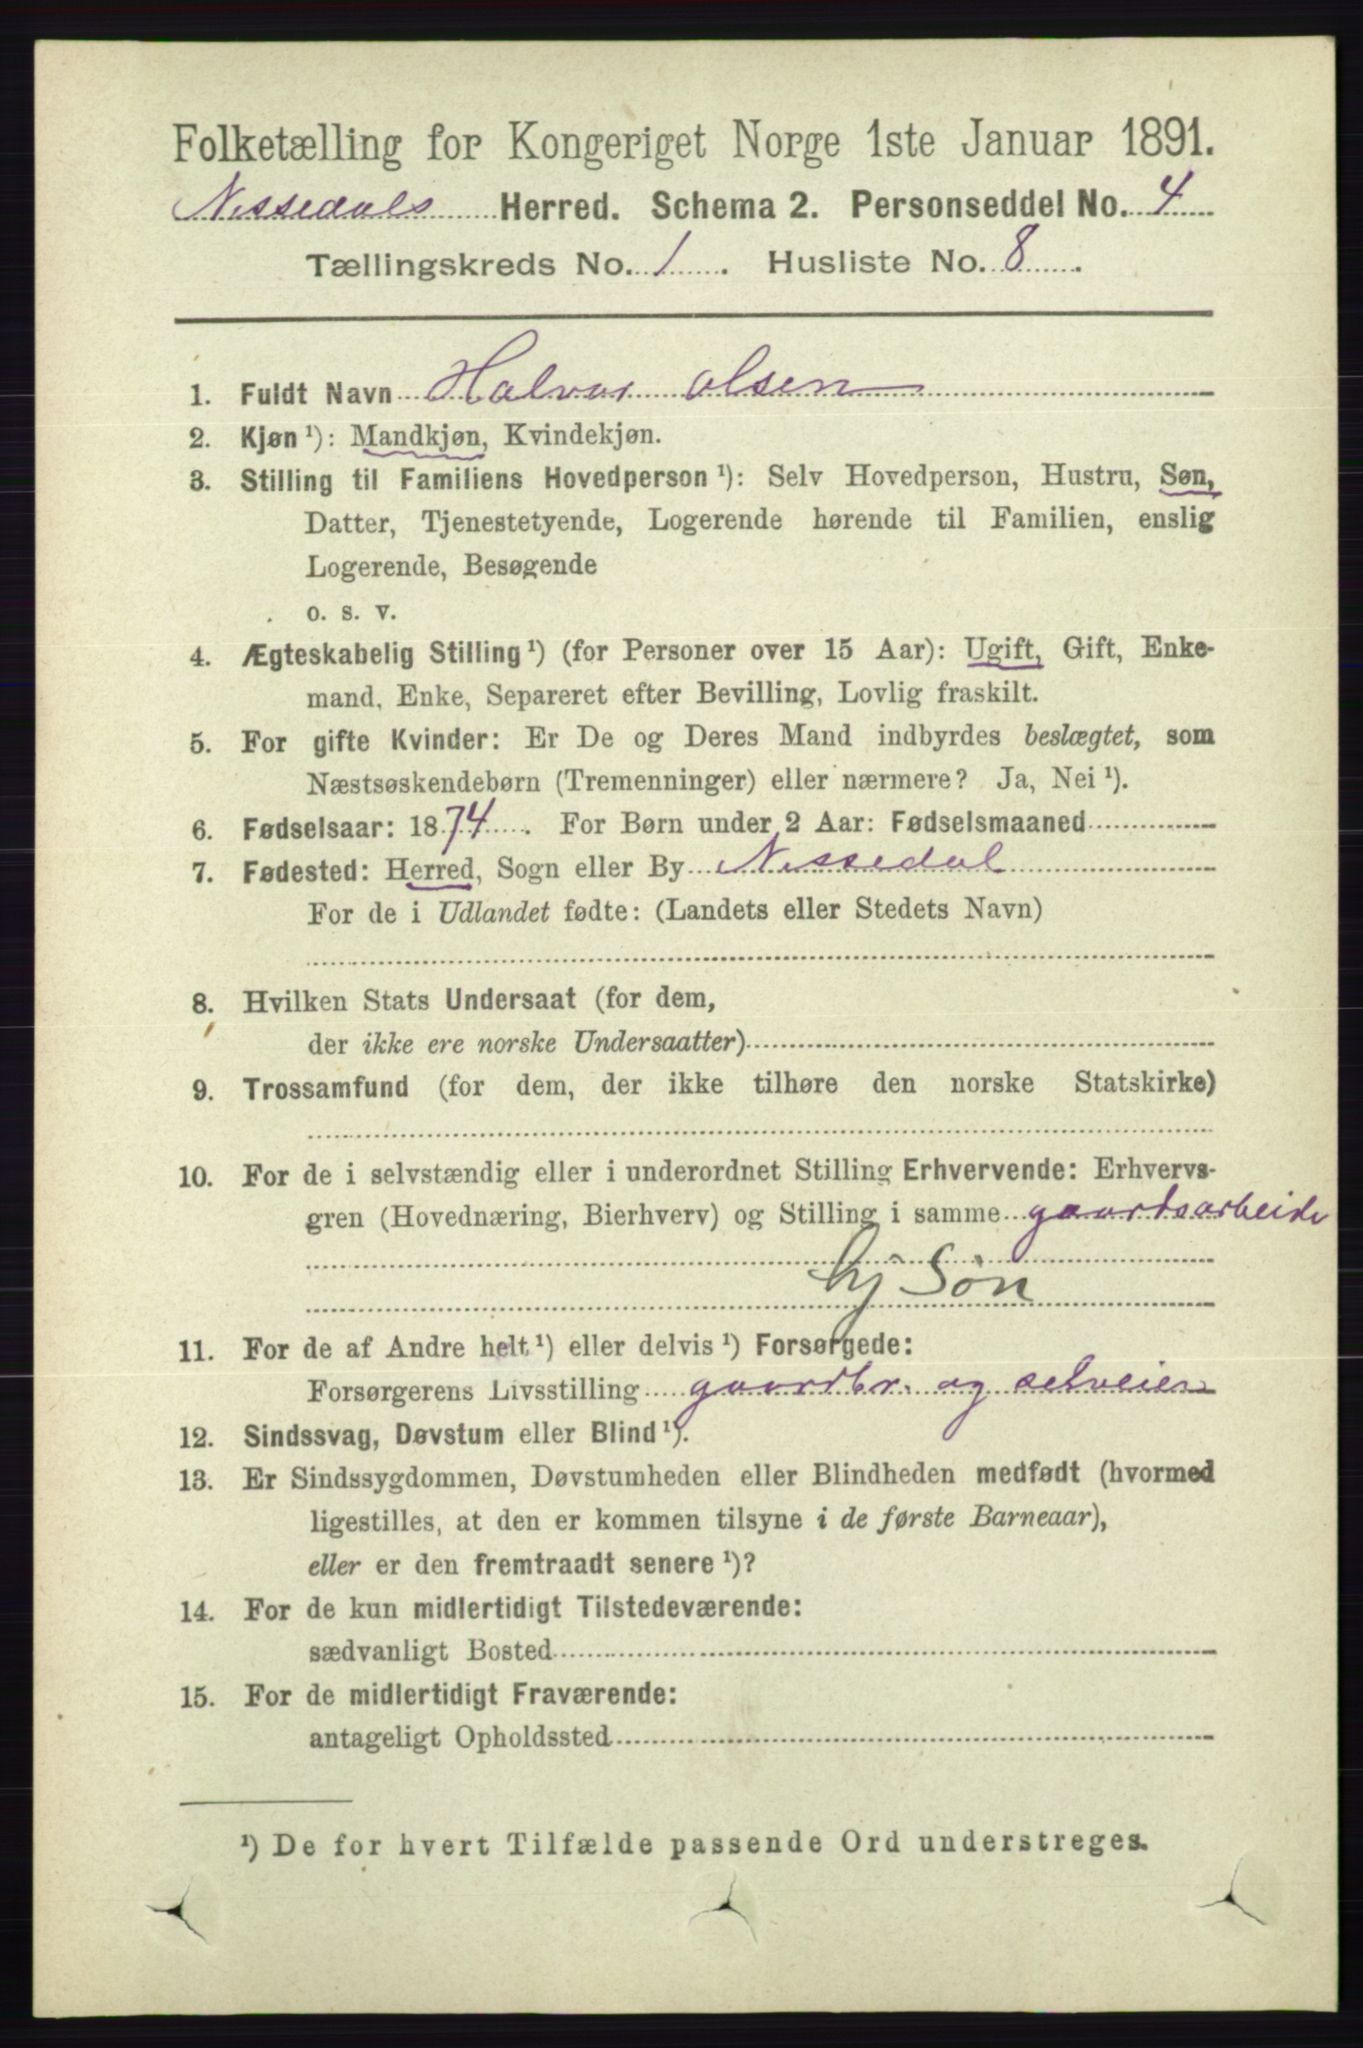 Folketælling for Kongeriget Norge 1ste Januar 1891.
Nissedals Herred. Schema 2. Personseddel No. 4
Tællingskreds No. 1. Husliste No. 8.
1. Fuldt Navn Halvor Olsen
2. Kjøn ¹): Mandkjøn, Kvindekjøn.
3. Stilling til Familiens Hovedperson ¹): Selv Hovedperson, Hustru, Søn,
Datter, Tjenestetyende, Logerende hørende til Familien, enslig
Logerende, Besøgende
o. s. v.
4. Ægteskabelig Stilling ¹) (for Personer over 15 Aar): Ugift, Gift, Enke-
mand, Enke, Separeret efter Bevilling, Lovlig fraskilt.
5. For gifte Kvinder: Er De og Deres Mand indbyrdes beslægtet, som
Næstsøskendebørn (Tremenninger) eller nærmere? Ja, Nei ¹).
6. Fødselsaar: 1874. For Børn under 2 Aar: Fødselsmaaned
7. Fødested: Herred, Sogn eller By Nissedal
For de i Udlandet fødte: (Landets eller Stedets Navn)
8. Hvilken Stats Undersaat (for dem,
der ikke ere norske Undersaatter)
9. Trossamfund (for dem, der ikke tilhøre den norske Statskirke)
10. For de i selvstændig eller i underordnet Stilling Erhvervende: Erhvervs-
gren (Hovednæring, Bierhverv) og Stilling i samme gaardsarbeide
hj Søn
11. For de af Andre helt ¹) eller delvis ¹) Forsørgede:
Forsørgerens Livsstilling gaardbr. og selveier
12. Sindssvag, Døvstum eller Blind ¹).
13. Er Sindssygdommen, Døvstumheden eller Blindheden medfødt (hvormed
ligestilles, at den er kommen tilsyne i de første Barneaar),
eller er den fremtraadt senere ¹)?
14. For de kun midlertidigt Tilstedeværende:
sædvanligt Bosted
15. For de midlertidigt Fraværende:
antageligt Opholdssted
¹) De for hvert Tilfælde passende Ord understreges.